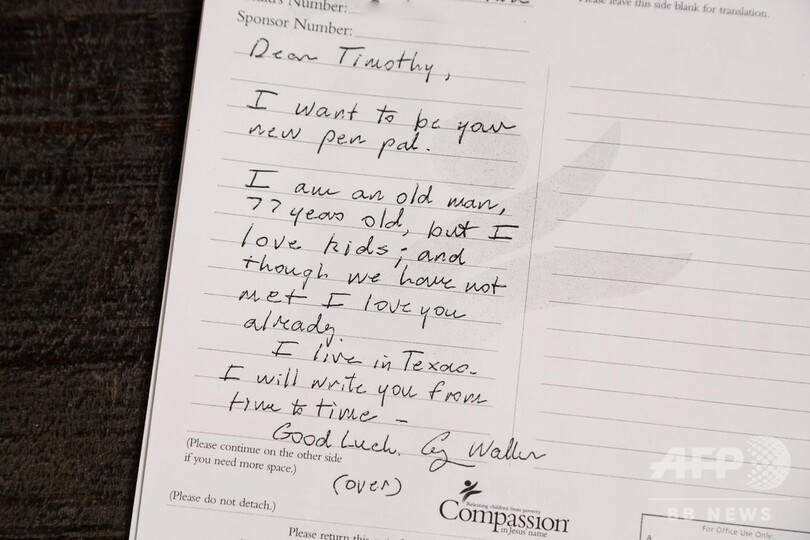 Number:
Please leave this side blank for translation.
Sponsor Number:
Dear Timothy,
I want to be your
new pen pal.
I am an old man,
77 years old, but I
love kids; and
though we have not
met I love you
already.
I live in Texas -
I will write you from
time to time -
Good Luck. G Walker
(Please continue on the other side
if you need more space.)
(over)
(Please do not detach.)
Releasing children from poverty
Compassion
in Jesus' name
Please return this
For Office Use Only:
A
AFP
BB NEWS